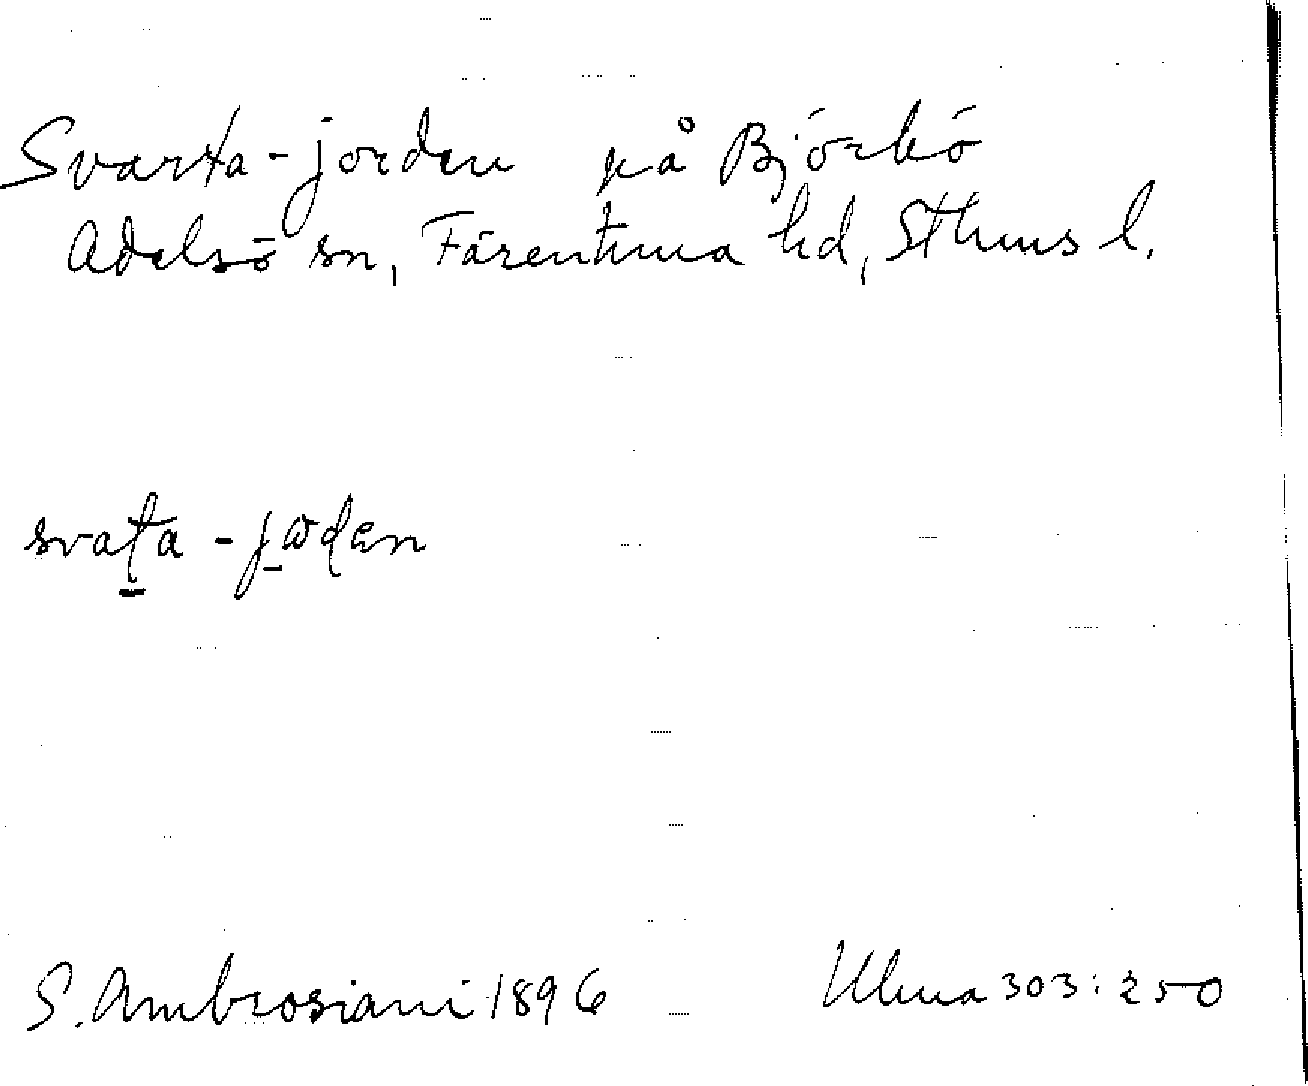 Svarta-jorden på Björkö
Adelsö sn, Färentuna hd, Sthms l.
svaṯa - jωḏen
S. Ambrosiani 1896
Ulma 303:250